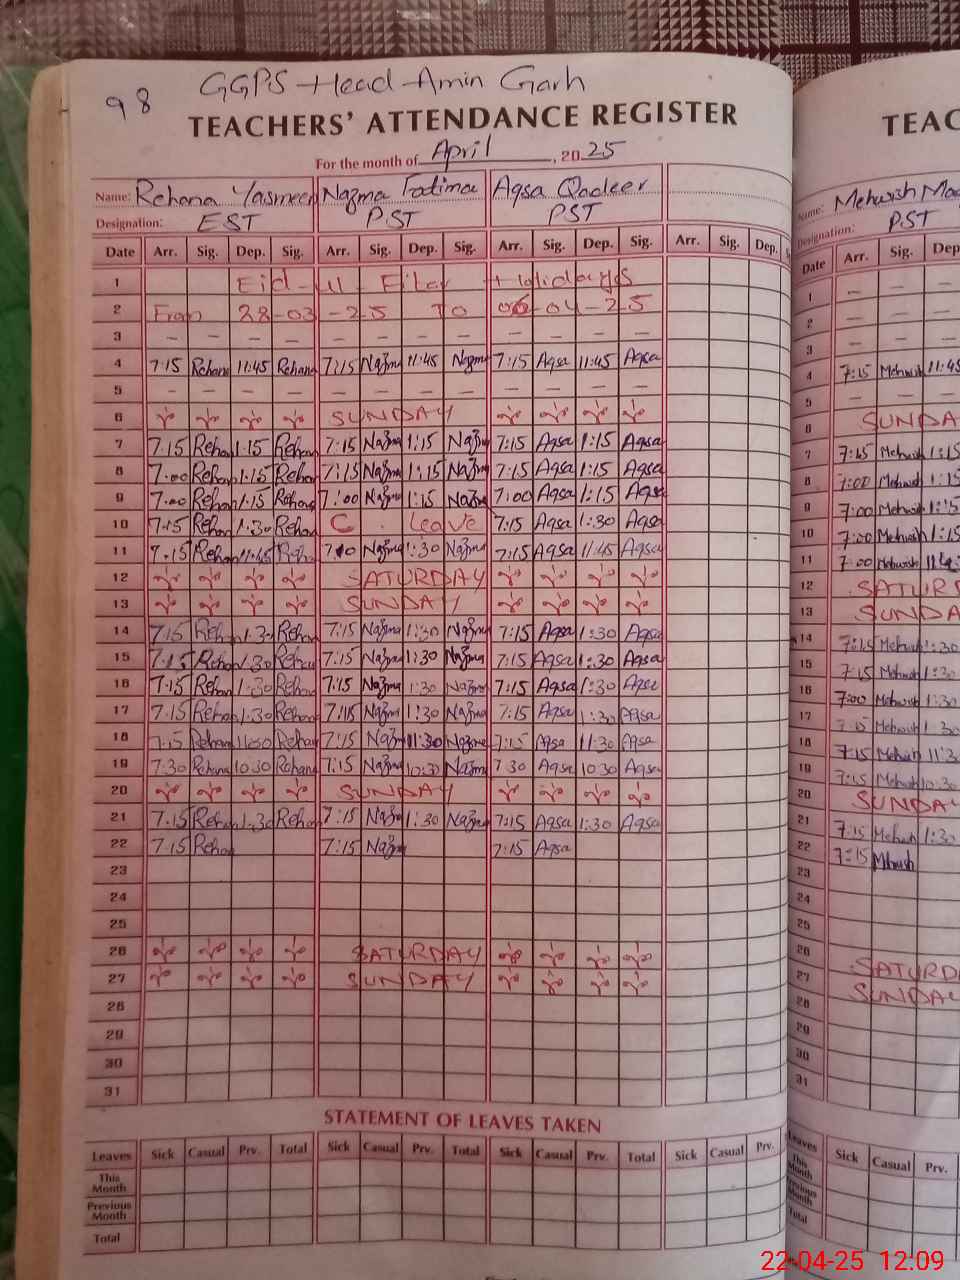 98 GGPS Head Amin Garh
TEACHERS' ATTENDANCE REGISTER
For the month of April, 2025
Name: Rehana Yasmeen Nazma Fatima Aqsa Qadeer
Designation: EST PST PST
Date Arr. Sig. Dep. Sig. Arr. Sig. Dep. Sig. Arr. Sig. Dep. Sig. Arr. Sig. Dep.
1 Eid-ul-Fiter Holidays
2 From 28-03-25 To 06-04-25
3 — — — — — — — — — — — —
4 7:15 Rehana 11:45 Rehana 7:15 Nazma 11:45 Nazma 7:15 Aqsa 11:45 Aqsa
5 — — — — — — — — — — — —
6 SUNDAY
7 7.15 Rehan 1.15 Rehan 7:15 Nazma 1:15 Nazm 7:15 Aqsa 1:15 Aqsa
8 7.00 Rehan 1.15 Rehan 7:15 Nazma 1:15 Nazm 7:15 Aqsa 1:15 Aqsa
9 7.00 Rehan 1.15 Rehan 7:00 Nazma 1:15 Nazm 7:00 Aqsa 1:15 Aqsa
10 7.15 Rehan 1.30 Rehan C. Leave 7:15 Aqsa 1:30 Aqsa
11 7.15 Rehan 11.45 Reha Nazma 1:30 Nazma 7:15 Aqsa 11:45 Aqsa
12 SATURDAY
13 SUNDAY
14 7.15 Reha 1.30 Rehan 7:15 Nazma 1:30 Nazma 7:15 Aqsa 1:30 Aqsa
15 7.15 Rehan 1.30 Rehan 7:15 Nazma 1:30 Nazma 7:15 Aqsa 1:30 Aqsa
16 7.15 Rehan 1.30 Rehan 7:15 Nazma 1:30 Nazma 7:15 Aqsa 1:30 Aqsa
17 7.15 Rehan 1.30 Rehan 7:15 Nazma 1:30 Nazma 7:15 Aqsa 1:30 Aqsa
18 7.15 Rehan 11.30 Rehan 7:15 Nazma 11:30 Nazma 7:15 Aqsa 11:30 Aqsa
19 7:30 Rehana 10:30 Rehana 7:15 Nazma 10:30 Nazma 7:30 Aqsa 10:30 Aqsa
20 SUNDAY
21 7.15 Rehan 1.30 Rehan 7:15 Nazma 1:30 Nazma 7:15 Aqsa 1:30 Aqsa
22 7.15 Rehan 7:15 Nazm 7:15 Aqsa
23
24
25
26 SATURDAY
27 SUNDAY
28
29
30
31
STATEMENT OF LEAVES TAKEN
Leaves Sick Casual Prv. Total Sick Casual Prv. Total Sick Casual Prv. Total Sick Casual Prv.
This Month
Previous Month
Total
TEAC
Name: Mehwish
Designation: PST
Date Arr. Sig. Dep
1 — —
2 — —
3 — —
4 7:15 Mehwish 11:45
5 — —
6 SUNDA
7 7:15 Mehwish 1:15
8 7:00 Mehwish 1:15
9 7:00 Mehwish 1:15
10 7:00 Mehwish 1:15
11 7:00 Mehwish
12 SATURD
13 SUNDA
14 7:15 Mehwish 1:30
15 7:15 Mehwish 1:30
16 7:00 Mehwish 1:30
17 7:15 Mehwish 1:30
18 7:15 Mehwish 11:3
19 7:15 Mehwish 10:30
20 SUNDAY
21 7:15 Mehwish 1:30
22 7:15 Mehwish
23
24
25
26 SATURD
27 SUNDAY
28
29
30
31
Leaves Sick Casual Prv.
This Month
Previous Month
Total
22-04-25 12:09